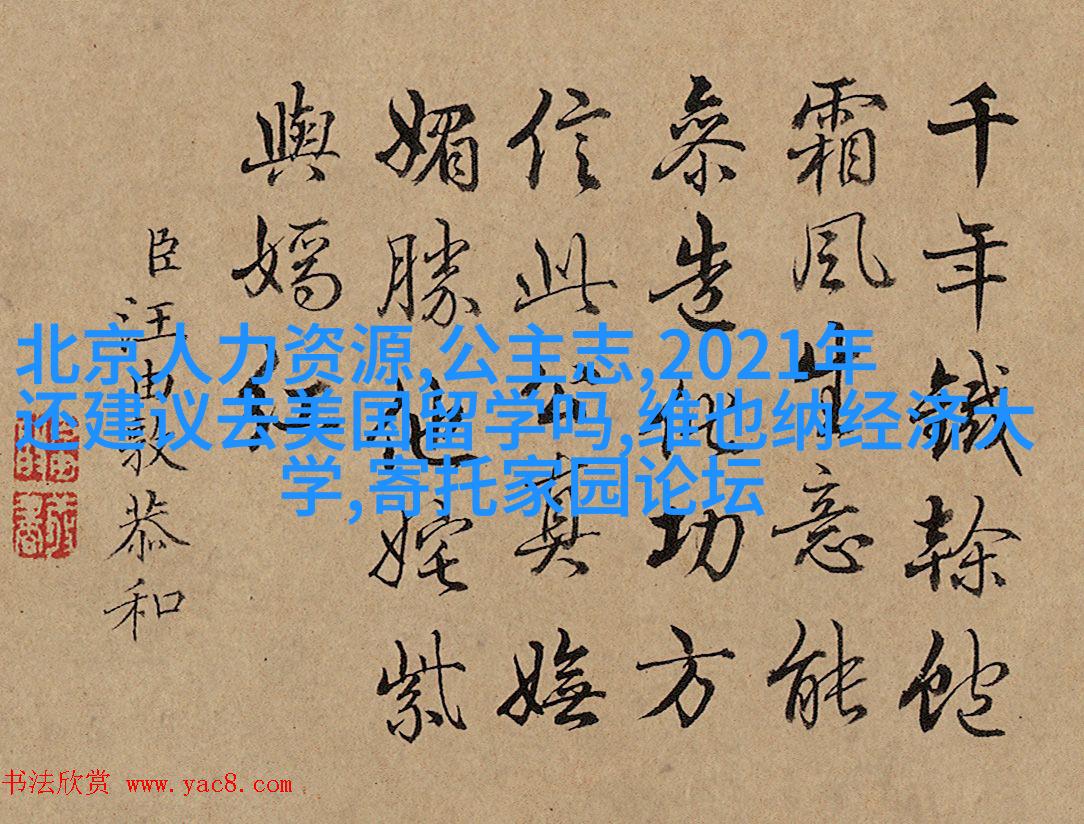 北京人力资源,公主志,2021年
还建议去美国留学吗,维也纳经济大
学,寄托家园论坛
千年鐵榦飽
霜風意能
參造化功方
信此真嫵
媚勝他姹紫
與嫣紅
臣汪由敦恭和
书法欣赏 www.yac8.com